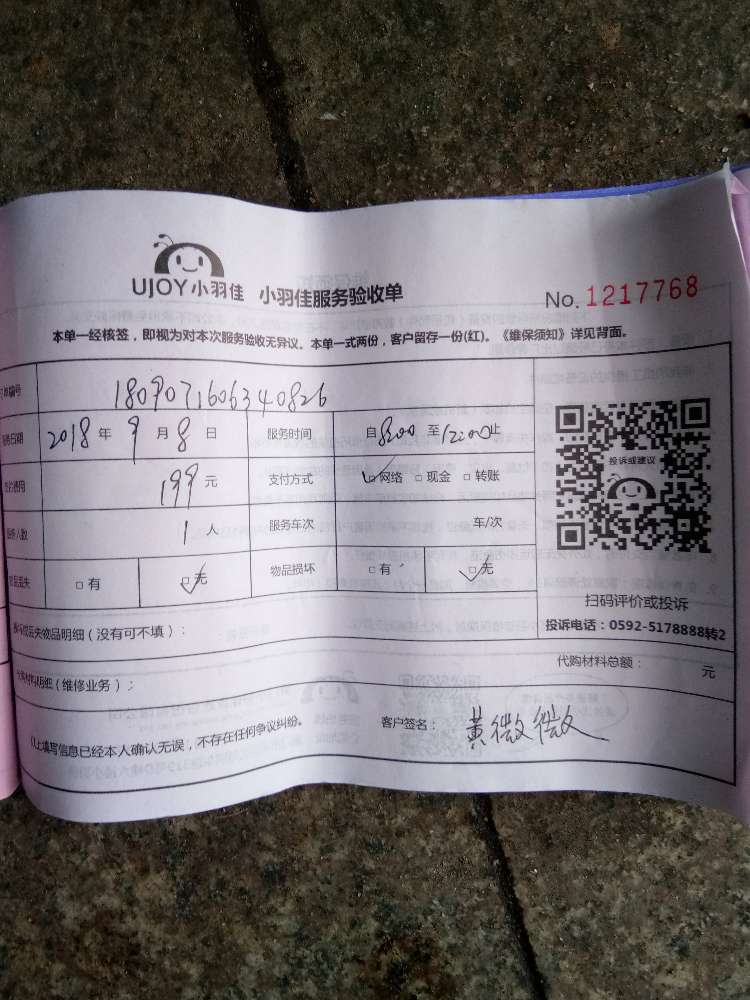 UJOY小羽佳 小羽佳服务验收单 No. 1217768
本单一经核签，即视为对本次服务验收无异议。本单一式两份，客户留存一份(红)。《维保须知》详见背面。
编号 1809071606340826
日期 2018 年 9 月 8 日 服务时间 自 8:00 至 12:00 止
费用 199 元 支付方式 ☑网络 □现金 □转账
人数 1 人 服务车次 车/次
丢失 □有 ☑无 物品损坏 □有 ☑无
投诉或建议
扫码评价或投诉
投诉电话：0592-5178888转2
丢失物品明细（没有可不填）：
材料明细（维修业务）： 代购材料总额： 元
以上填写信息已经本人确认无误，不存在任何争议纠纷。 客户签名： 黄微微